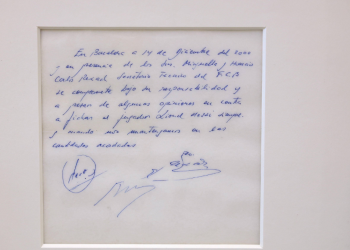 En Barcelona a 14 de diciembre del 2000
y en presencia de los Srs. Minguella y Horacio
Carles Rexach Secretario Técnico del F.C.B
se compromete bajo su responsabilidad y
a pesar de algunas opiniones en contra
a fichar al jugador Lionel Messi
y cuando nos mantengamos en las
cantidades acordadas